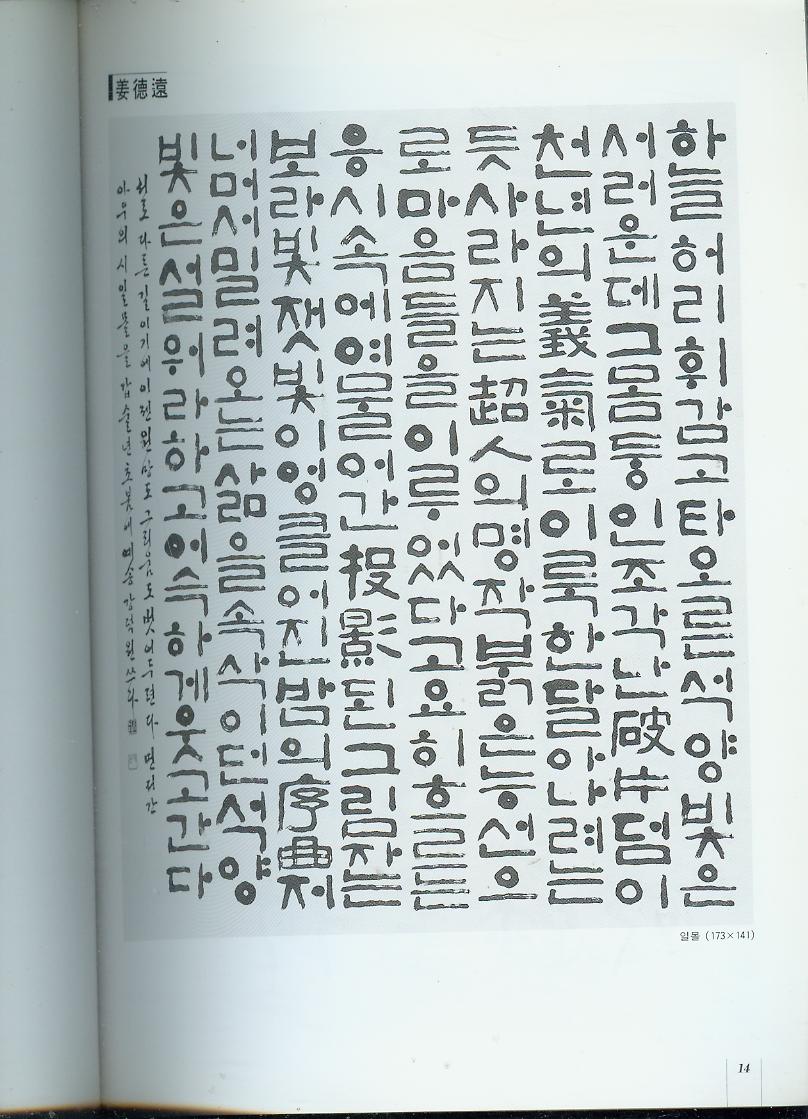 姜德遠
하늘허리휘감고타오른석양빛은
서러운데그몸둥인조각난破片덤이
천년의義氣로이룩한달아나려는
듯사라지는超人의명작붉은능선으
로마음들을이루었다고요히흐르는
응시속에여물어간投影된그림자는
보라빛잿빛이영클어진밤의序曲저
너머서밀려오는삶을속삭이던석양
빛은설워라하고어슥하게웃고간다
서로 다른 길이기에 이젠 원망도 그리움도 벗어두련다 먼저간
아우의 시 일몰을 갑술년 초봄에 예송 강덕원 쓰다
일몰 (173×141)
14